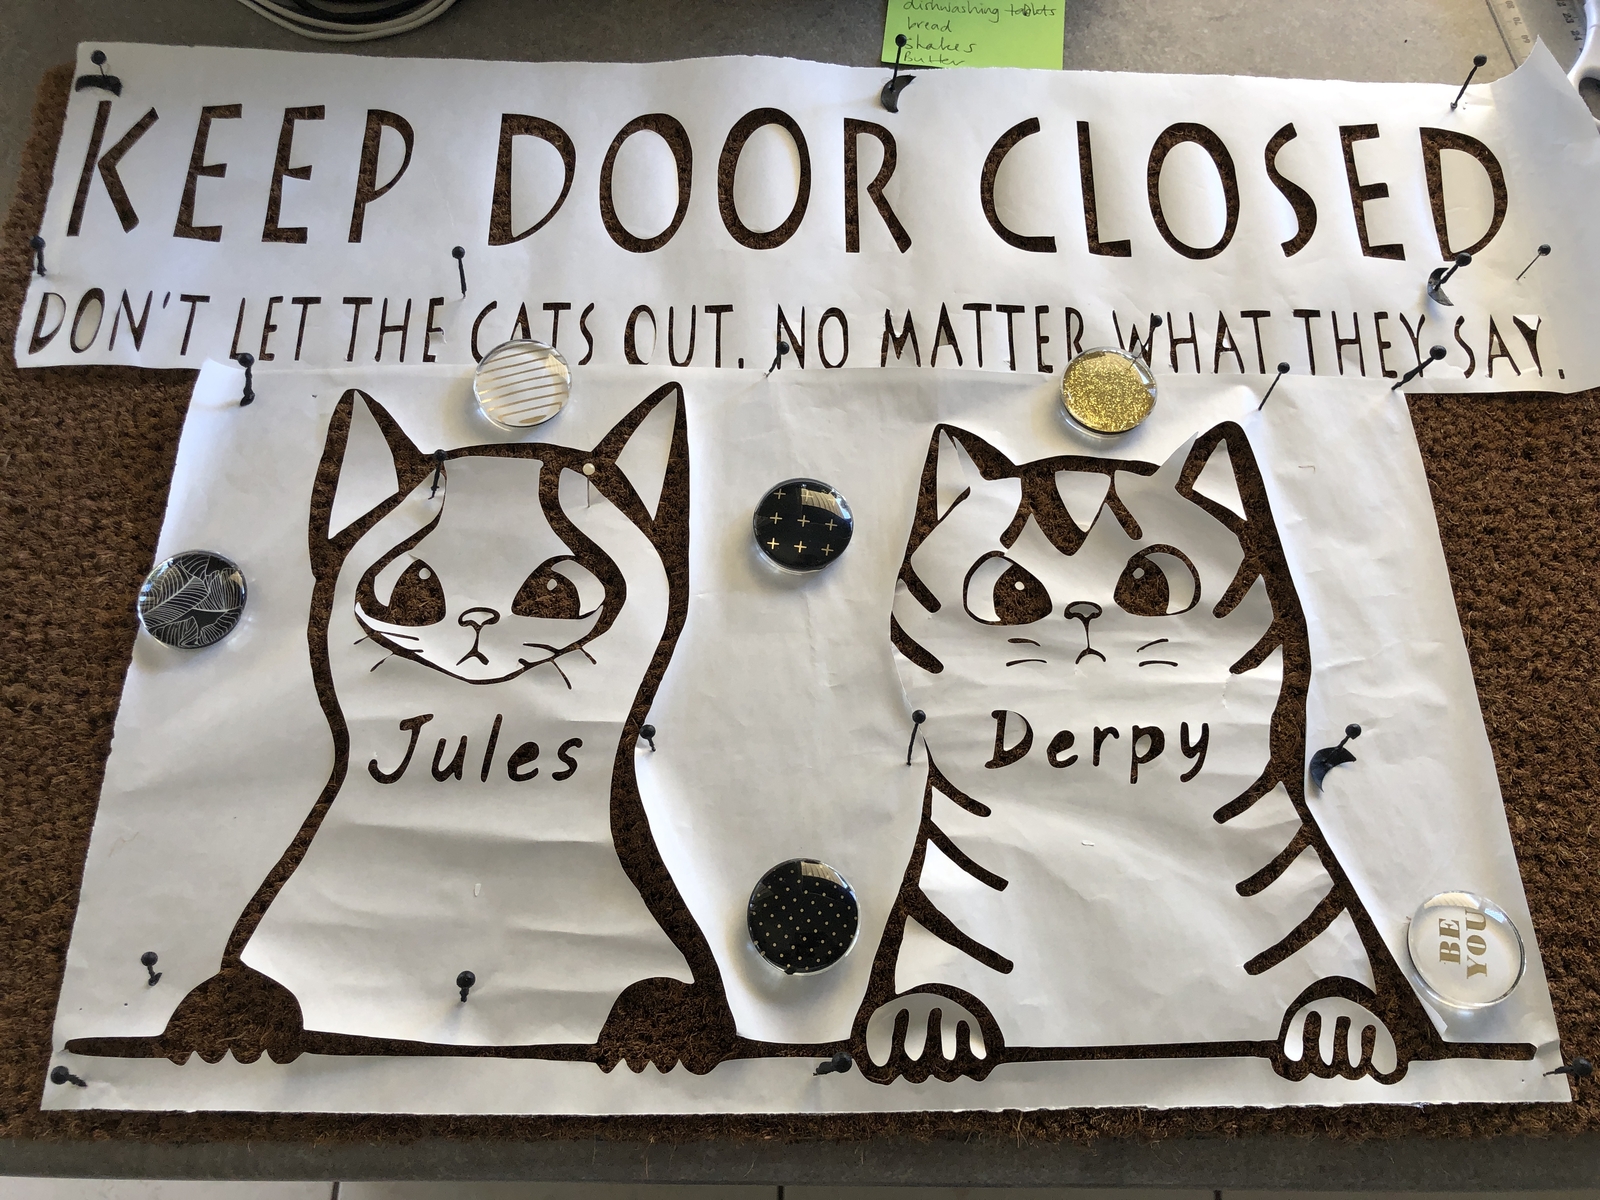 dishwashing tablets
bread
Shakes
Butter
KEEP DOOR CLOSED
DON'T LET THE CATS OUT. NO MATTER WHAT THEY SAY.
Jules
Derpy
BE
YOU